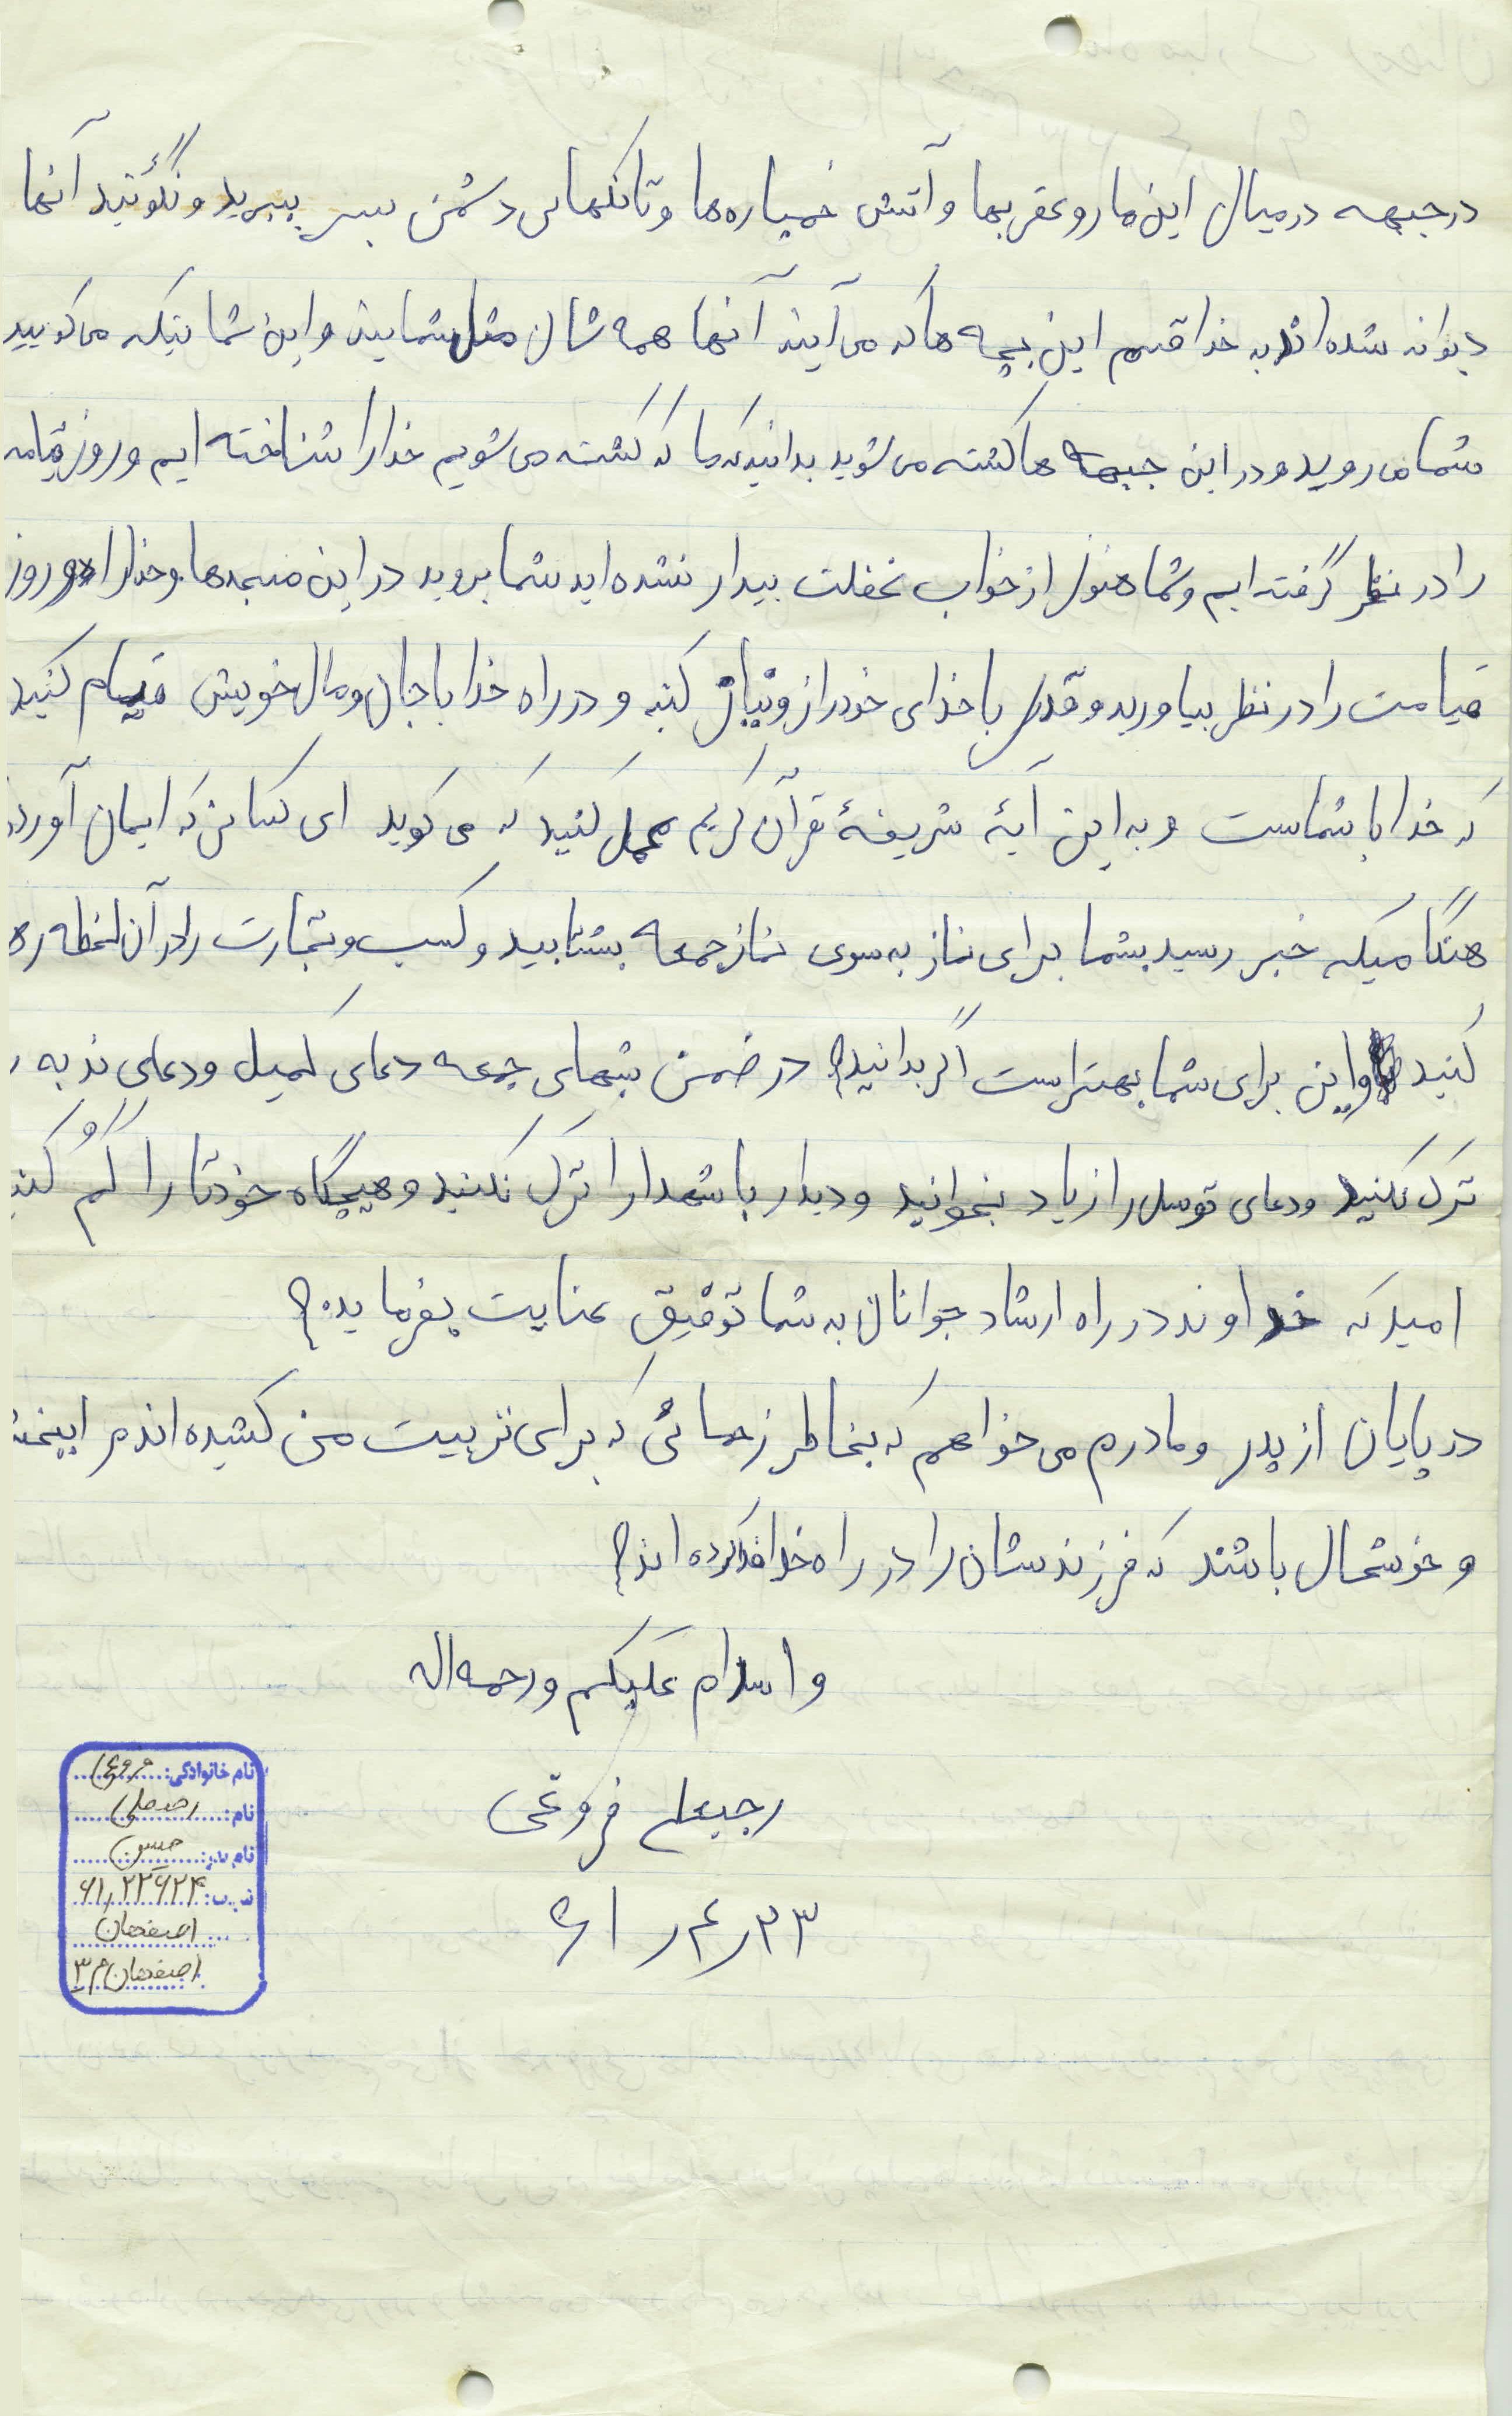 در جبهه در میال این مار و عقربها و آتش خمپاره‌ها و تانکهای دشمن بسر ببرید و نگوئید آنها
دیوانه شده‌اند به خدا قسم این بچه‌ها که می‌آیند آنها همه‌شان مثل شمایند و این شما ئیکه می‌گویید
شما می‌روید و در این جبهه ها کشته می‌شوید بدانید که ما که کشته می‌شویم خدا را شناخته ایم و روز قیامه
را در نظر گرفته ایم و شما هنوز از خواب غفلت بیدار نشده اید شما بروید در این مسجدها و خدا را و روز
قیامت را در نظر بیاورید و قدری با خدای خود راز و نیاز کنید و در راه خدا با جان و مال خویش قیام کنید
که خدا با شماست و به این آیۀ شریفۀ قرآن کریم عمل کنید که می گوید ای کسانی که ایمان آورده
هنگامیکه خبر رسید بشما برای نماز به سوی نماز جمعه بشتابید و کسب و تجارت را در آن لحظه ره
کنید و این برای شما بهتر است اگر بدانید در ضمن شبهای جمعه دعای کمیل و دعای ندبه ر
ترک نکنید و دعای توسل را زیاد بخوانید و دیدار با شهدا را ترک نکنید و هیچگاه خودتا را گُم کنید
امید که خداوند در راه ارشاد جوانان به شما توفیق عنایت بفرماید.
در پایان از پدر و مادرم می خواهم که بخاطر زحماتی که برای تربیت من کشیده اند م
و خوشحال باشند که فرزندشان را در راه خدا فدا کرده اند
و اسلام علیکم و رحمه اله
رجبعلی فروغی
۶۱/۴/۲۳
نام خانوادگی: فروغی
نام: رجبعلی
نام پدر: حسین
۶۱,۲۲۶۲۴
اصفهان
اصفهان م ۳